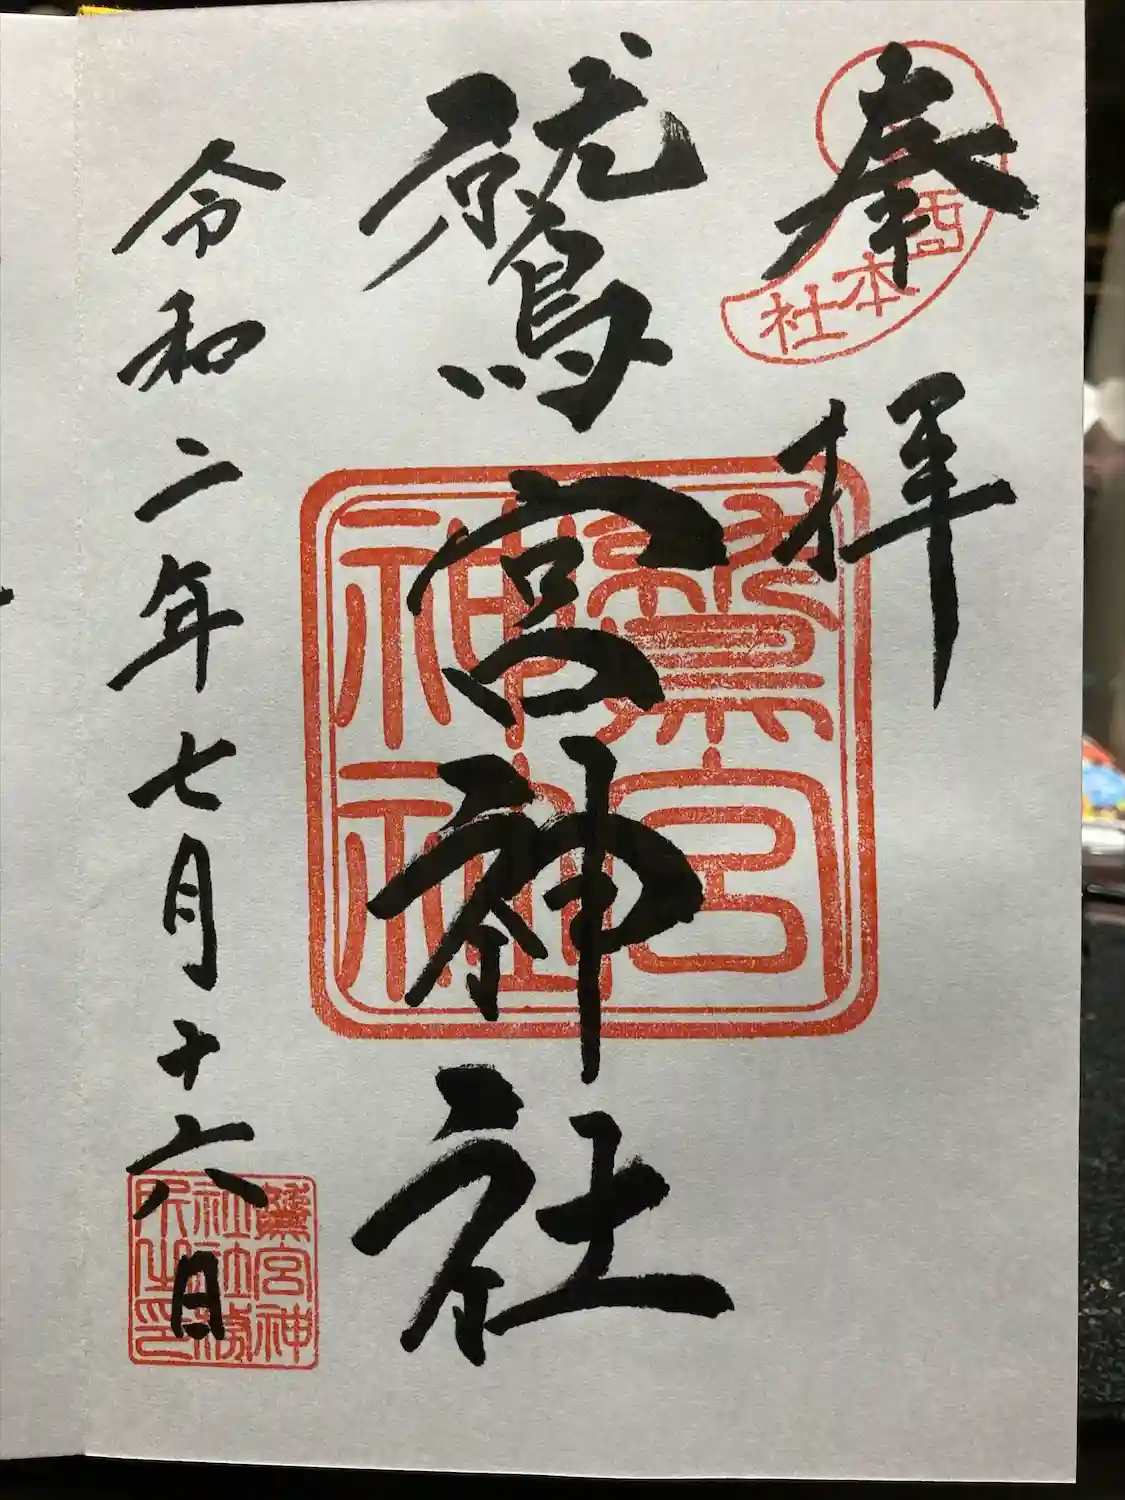 奉拝
酉
本社
鷲宮神社
鷲宮神社
令和二年七月十六日
鷲宮神
社社務
所之印